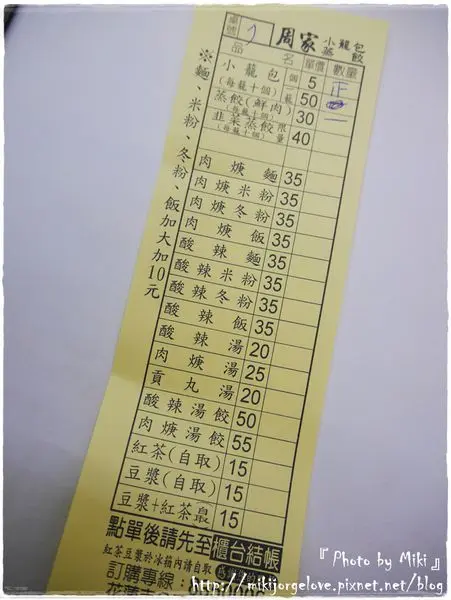 桌號
周家 小籠包 蒸餃
品名 單價 數量
小籠包 個 5 正
(每籠十個) 籠 50
蒸餃(鮮肉) 30
(每籠十個)
韭菜蒸餃 限量 40
(每籠十個)
肉焿麵 35
肉焿米粉 35
肉焿冬粉 35
肉焿飯 35
酸辣麵 35
酸辣米粉 35
酸辣冬粉 35
酸辣飯 35
酸辣湯 20
肉焿湯 25
貢丸湯 20
酸辣湯餃 50
肉焿湯餃 55
紅茶(自取) 15
豆漿(自取) 15
豆漿+紅茶 15
※麵、米粉、冬粉、飯加大加10元
點單後請先至櫃台結帳
紅茶豆漿於冰箱內請自取
訂購專線:
『 Photo by Miki 』
http://mikijorgelove.pixnet.net/blog